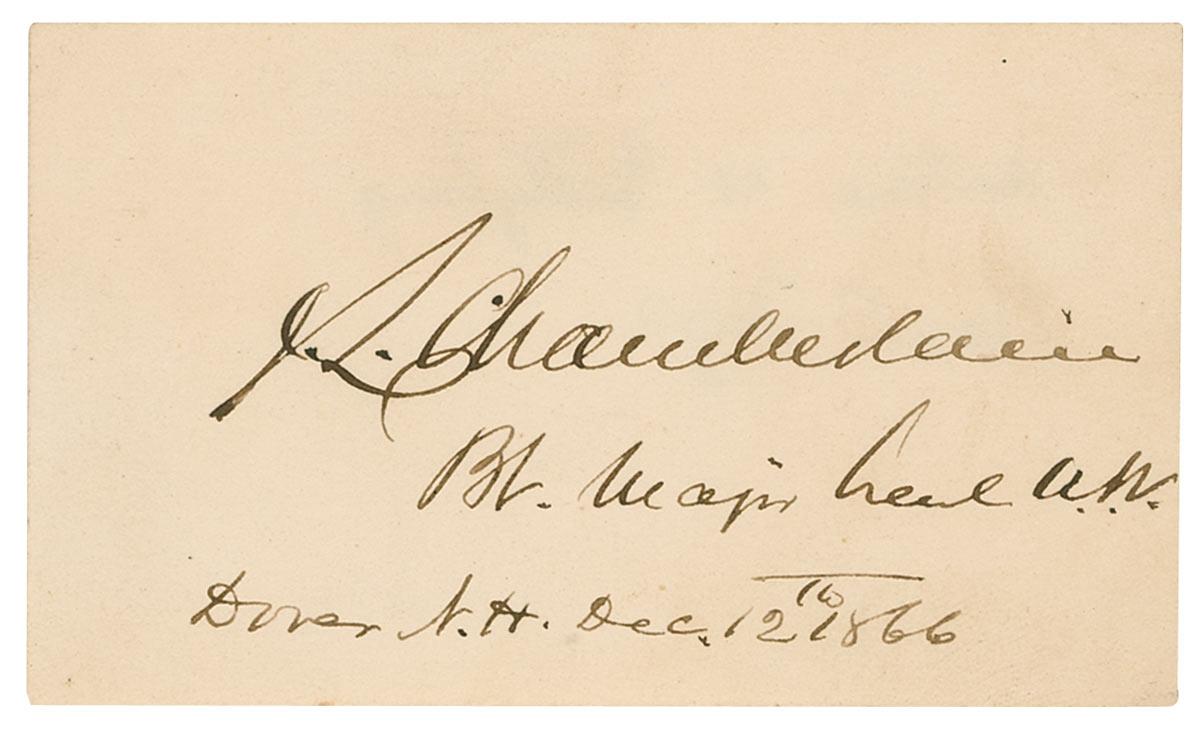 J. L. Chamberlain
Bt. Major Genl U.S.V.
Dover N.H. Dec. 12th 1866